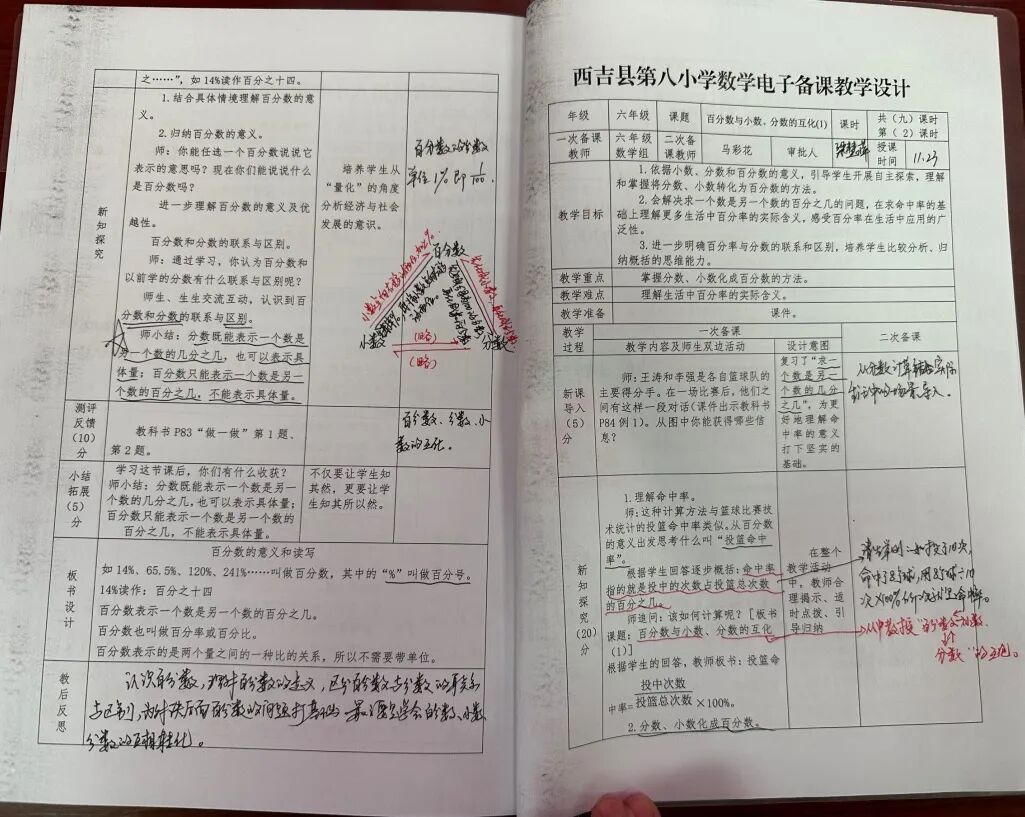 之……”，如14%读作百分之十四。
新知探究
1.结合具体情境理解百分数的意
义。
2.归纳百分数的意义。
师：你能任选一个百分数说说它
表示的意思吗？现在你们能说说什么
是百分数吗？
进一步理解百分数的意义及优
越性。
百分数和分数的联系与区别。
师：通过学习，你认为百分数和
以前学的分数有什么联系与区别呢？
师生、生生交流互动，认识到百
分数和分数的联系与区别。
师小结：分数既能表示一个数是
另一个数的几分之几，也可以表示具
体量；百分数只能表示一个数是另一
个数的百分之几，不能表示具体量。
培养学生从
“量化”的角度
分析经济与社会
发展的意识。
百分数的分数
单位1%即1/100.
百分数
小数
分数
（略）
（略）
测评
反馈
（10）
分
教科书P83“做一做”第1题、
第2题。
百分数、分数、小
数的互化.
小结
拓展
（5）
分
学习这节课后，你们有什么收获？
师小结：分数既能表示一个数是另一
个数的几分之几，也可以表示具体量；
百分数只能表示一个数是另一个数的
百分之几，不能表示具体量。
不仅要让学生知
其然，更要让学
生知其所以然。
板书设计
百分数的意义和读写
如14%、65.5%、120%、241%……叫做百分数，其中的“%”叫做百分号。
14%读作：百分之十四
百分数表示一个数是另一个数的百分之几。
百分数也叫做百分率或百分比。
百分数表示的是两个量之间的一种比的关系，所以不需要带单位。
教后反思
认识百分数，理解百分数的意义，区分百分数与分数的联系
与区别，为解决后面百分数的问题打基础
分数的互相转化。
西吉县第八小学数学电子备课教学设计
年级 六年级 课题 百分数与小数、分数的互化(1) 课时 共（九）课时
第（2）课时
一次备课
教师 六年级
数学组 二次备
课教师 马彩花 审批人 授课
时间 11.23
教学目标
1.依据小数、分数和百分数的意义，引导学生开展自主探索，理解
和掌握得分数、小数转化为百分数的方法。
2.会解决求一个数是另一个数的百分之几的问题，在求命中率的基
础上理解更多生活中百分率的实际含义，感受百分率在生活中应用的广
泛性。
3.进一步明确百分率与分数的联系和区别，培养学生比较分析、归
纳概括的思维能力。
教学重点 掌握分数、小数化成百分数的方法。
教学难点 理解生活中百分率的实际含义。
教学准备 课件。
教学
过程 一次备课 二次备课
教学内容及师生双边活动 设计意图
新课
导入
（5）
分
师：王涛和李强是各自篮球队的
主要得分手。在一场比赛后，他们之
间有这样一段对话（课件出示教科书
P84例1）。从图中你能获得哪些信
息？
复习了“求一
个数是另一
个数的几分
之几”，为更
好地理解命
中率的意义
打下坚实的
基础。
新知
探究
（20）
分
1.理解命中率。
师：这种计算方法与篮球比赛技
术统计的投篮命中率类似。从百分数
的意义出发思考什么叫“投篮命中
率”。
根据学生回答逐步概括：命中率
指的就是投中的次数占投篮总次数
的百分之几。
师追问：该如何计算呢？［板书
课题：百分数与小数、分数的互化
(1)］
根据学生的回答，教师板书：投篮命
中率=投中次数/投篮总次数×100%。
2.分数、小数化成百分数。
在整个
教学活动
中，教师合
理揭示、适
时点拨、引
导归纳